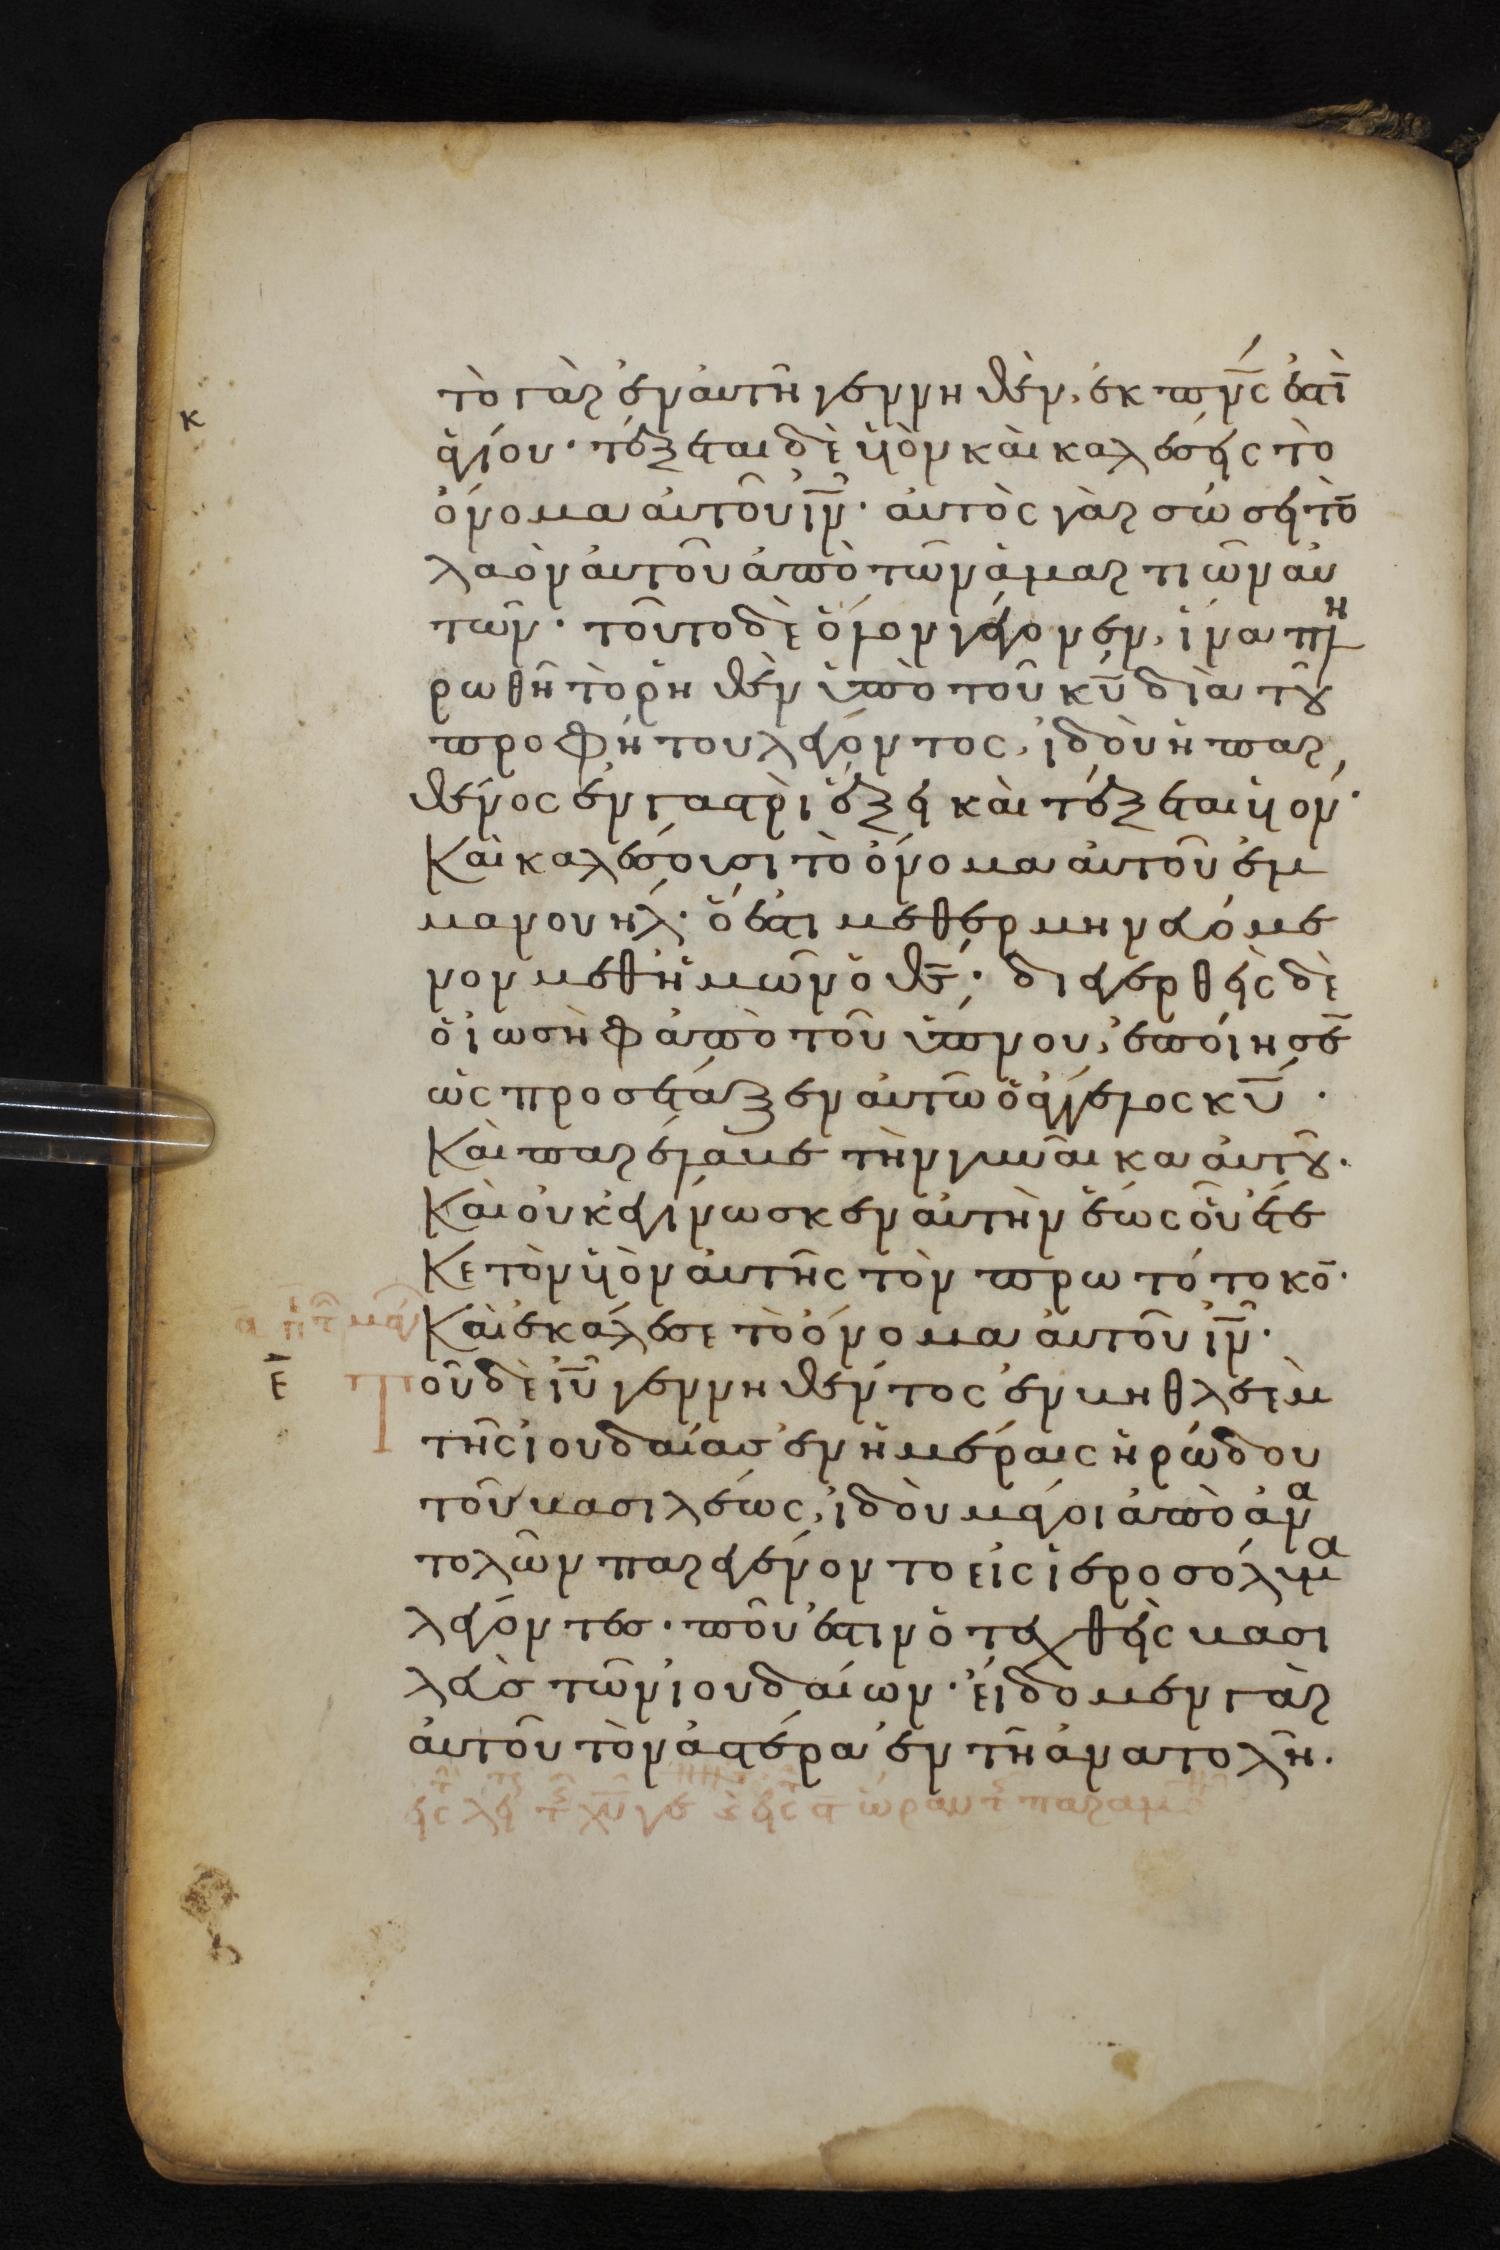 κ
τὸ γὰρ ἐν αὐτῆ γεννηθὲν, ἐκ π̅ν̅ς ἐστὶ
ἁγίου· τέξεται δὲ υἱὸν καὶ καλέσεις τὸ
ὄνομα αὐτοῦ ι̅ν̅· αὐτὸς γὰρ σώσει τὸ̅
λαὸν αὐτοῦ ἀπὸ τῶν ἁμαρτιῶν αὐ
τῶν· τοῦτο δὲ ὅλον γέγονεν, ἵνα πλη
ρωθῆ τὸ ῥηθὲν ὑπὸ τοῦ κ̅υ̅ διὰ τοῦ
προφήτου λέγοντος, ἰδοὺ ἡ παρ
θένος ἐν γαστρὶ ἕξει καὶ τέξεται υἱόν·
Καὶ καλέσουσι τὸ ὄνομα αὐτοῦ ἐμ
μανουήλ· ὅ ἐστι μεθερμηνευόμε
νον μεθ ἡμῶν ὁ θ̅ς̅· διεγερθεὶς δὲ
ὁ ἰωσὴφ ἀπὸ τοῦ ὕπνου, ἐποίησε̅
ὡς προσέταξεν αὐτῶ ὁ ἄγγελος κ̅υ̅·
Καὶ παρέλαβε τὴν γυναῖκα αὐτοῦ·
Καὶ οὐκ ἐγίνωσκεν αὐτὴν ἕως οὗ ἔτε
Κε τὸν υἱὸν αὐτῆς τὸν πρωτότοκο̅·
Καὶ ἐκάλεσε τὸ ὄνομα αὐτοῦ ι̅ν̅·
ε̅ Τοῦ δὲ ι̅υ̅ γεννηθέντος ἐν βηθλεὲμ
τῆς ἰουδαίας ἐν ἡμέραις ἡρώδου
τοῦ βασιλέως, ἰδοὺ μάγοι ἀπὸ ἀνα
τολῶν παρεγένοντο εἰς ἱεροσόλυμα
λέγοντες· ποῦ ἐστιν ὁ τεχθεὶς βασι
λεὺς τῶν ἰουδαίων· εἴδομεν γὰρ
αὐτοῦ τὸν ἀστέρα ἐν τῆ ἀνατολῆ·